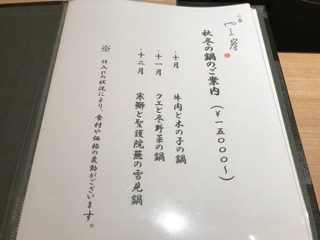 秋冬の鍋のご案内
(￥一五〇〇〇～)
・十月 牛肉と木の子の鍋
・十一月 クエと冬野菜の鍋
・十二月 寒鰤と聖護院蕪の雪見鍋
※ 仕入れの状況により、食材や価格の変動がございます。